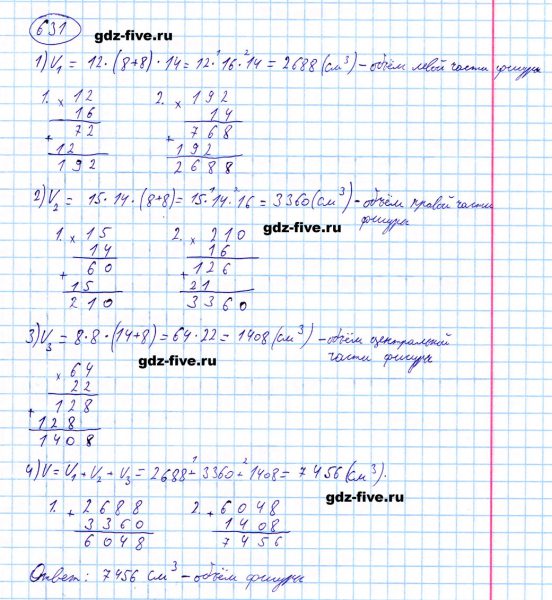 631
gdz-five.ru
1) V₁ = 12 · (8+8) · 14 = 12 ·¹ 16 ·² 14 = 2688 (см³) – объём левой части фигуры
1. × 12
16
72
+
12
192
2. × 192
14
768
+
192
2688
2) V₂ = 15 · 14 · (8+8) = 15 ·¹ 14 ·² 16 = 3360 (см³) – объём правой части
фигуры
gdz-five.ru
1. × 15
14
60
+
15
210
2. × 210
16
+ 126
21
3360
3) V₃ = 8 · 8 · (14+8) = 64 · 22 = 1408 (см³) – объём центральной
части фигуры
gdz-five.ru
× 64
22
+ 128
128
1408
4) V = V₁ + V₂ + V₃ = 2688 +¹ 3360 +² 1408 = 7456 (см³).
gdz-five.ru
1. + 2688
3360
6048
2. + 6048
1408
7456
Ответ: 7456 см³ – объём фигуры